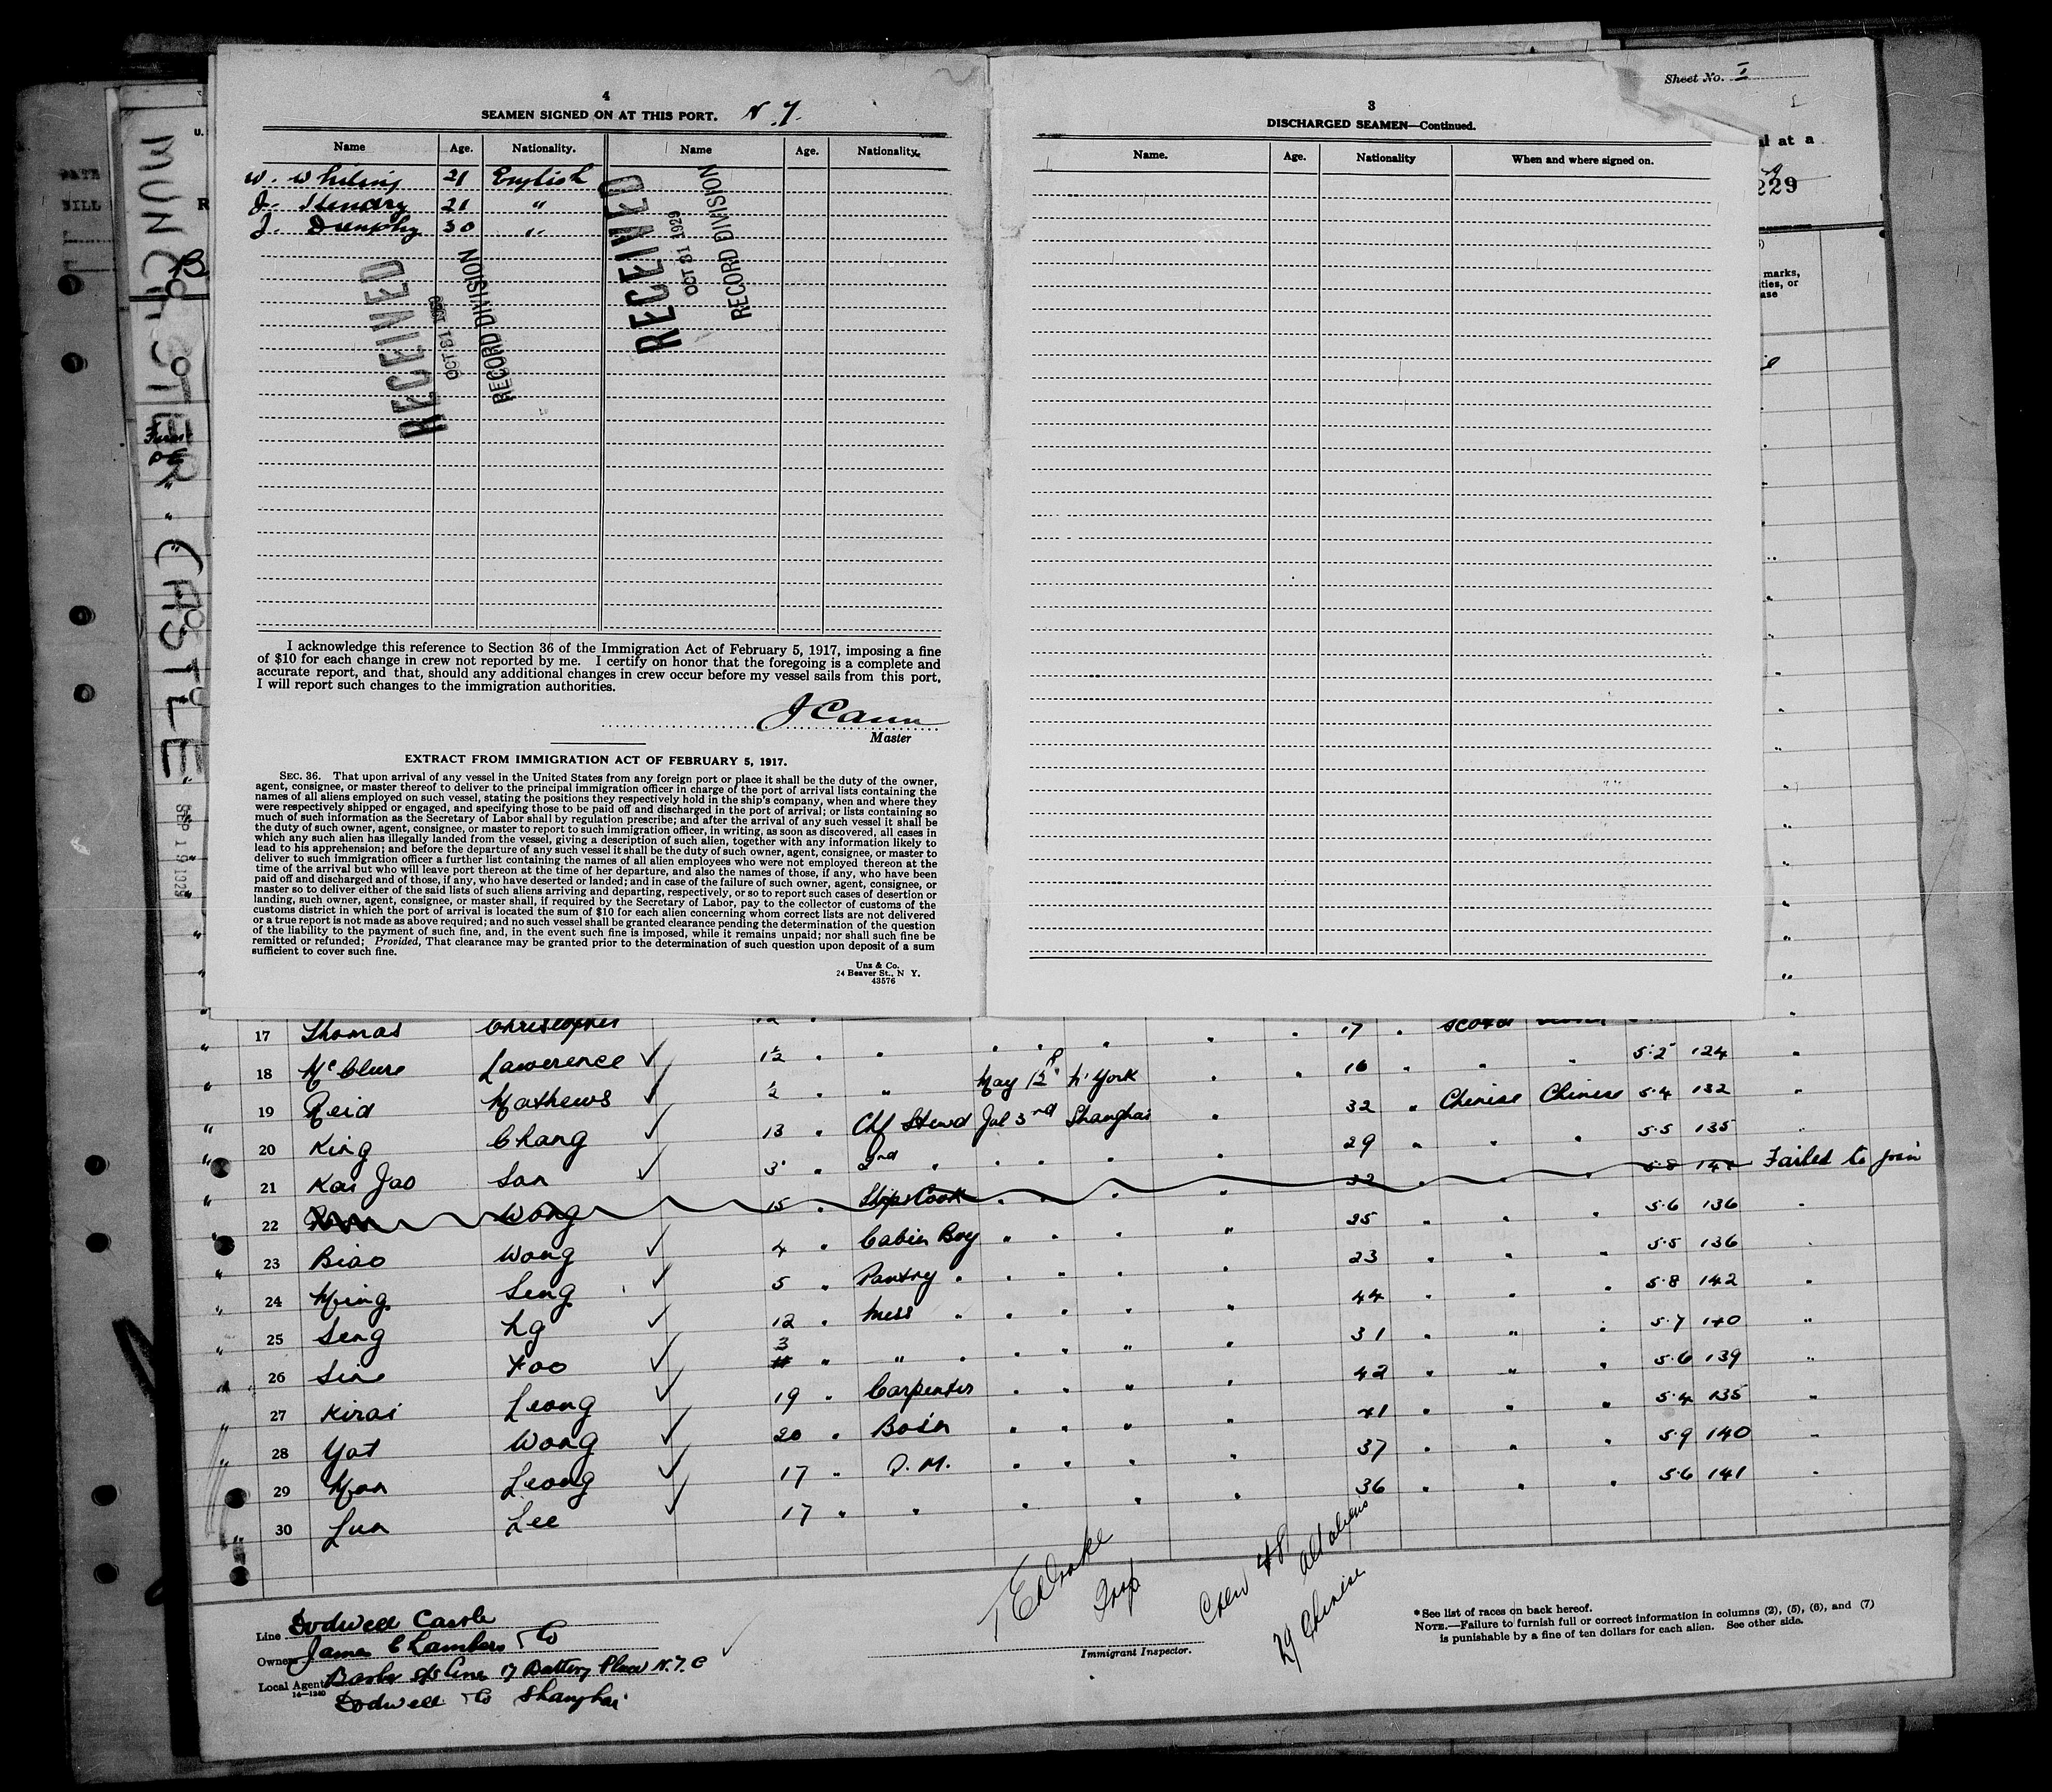 4
SEAMEN SIGNED ON AT THIS PORT. N.Y.
Name Age. Nationality. Name Age. Nationality.
W. Whiting 21 English
J. Hendry 21 "
J. 30 "
RECEIVED
OCT 31 1929
RECORD DIVISION
RECEIVED
OCT 31 1929
RECORD DIVISION
I acknowledge this reference to Section 36 of the Immigration Act of February 5, 1917, imposing a fine
of $10 for each change in crew not reported by me. I certify on honor that the foregoing is a complete and
accurate report, and that, should any additional changes in crew occur before my vessel sails from this port,
I will report such changes to the immigration authorities.
J Cann
Master
EXTRACT FROM IMMIGRATION ACT OF FEBRUARY 5, 1917.
SEC. 36. That upon arrival of any vessel in the United States from any foreign port or place it shall be the duty of the owner,
agent, consignee, or master thereof to deliver to the principal immigration officer in charge of the port of arrival lists containing the
names of all aliens employed on such vessel, stating the positions they respectively hold in the ship's company, when and where they
were respectively shipped or engaged, and specifying those to be paid off and discharged in the port of arrival; or lists containing so
much of such information as the Secretary of Labor shall by regulation prescribe; and after the arrival of any such vessel it shall be
the duty of such owner, agent, consignee, or master to report to such immigration officer, in writing, as soon as discovered, all cases in
which any such alien has illegally landed from the vessel, giving a description of such alien, together with any information likely to
lead to his apprehension; and before the departure of any such vessel it shall be the duty of such owner, agent, consignee, or master to
deliver to such immigration officer a further list containing the names of all alien employees who were not employed thereon at the
time of the arrival but who will leave port thereon at the time of her departure, and also the names of those, if any, who have been
paid off and discharged and of those, if any, who have deserted or landed; and in case of the failure of such owner, agent, consignee, or
master so to deliver either of the said lists of such aliens arriving and departing, respectively, or so to report such cases of desertion or
landing, such owner, agent, consignee, or master shall, if required by the Secretary of Labor, pay to the collector of customs of the
customs district in which the port of arrival is located the sum of $10 for each alien concerning whom correct lists are not delivered
or a true report is not made as above required; and no such vessel shall be granted clearance pending the determination of the question
of the liability to the payment of such fine, and, in the event such fine is imposed, while it remains unpaid; nor shall such fine be
remitted or refunded; Provided, That clearance may be granted prior to the determination of such question upon deposit of a sum
sufficient to cover such fine.
Unz & Co.
24 Beaver St., N Y.
43576
Sheet No. I
3
DISCHARGED SEAMEN—Continued.
Name. Age. Nationality When and where signed on.
al at a
229
marks,
ities, or
ase
MUNCASTER CASTLE
SEP 19 1929
17 Thomas Christopher 17 "
18 McClure Lawerence ✓ 1½ " " " " " " 16 " " " 5.2 124 "
19 Reid Mathews ✓ ½ " " May 12 N' York " 32 " Chinese Chinese 5.4 132 "
20 King Chang ✓ 13 " Chf Stewd Jul 3rd Shanghai " 29 " " " 5.5 135 "
21 Kai Jao San ✓ 3 " 2nd " " " " " 32 " " " 5.8 Failed to join
22 Wong 15 " Ships Cook " " " " 25 " " " 5.6 136 "
23 Biao Wong ✓ 4 " Cabin Boy " " " " 23 " " " 5.5 136 "
24 Ming Seng ✓ 5 " Pantry " " " " " 44 " " " 5.8 142 "
25 Seng Ng ✓ 12 " Mess " " " " " 31 " " " 5.7 140 "
26 Sine Foo ✓ 3 " " " " " " " 42 " " " 5.6 139 "
27 Kirai Leong ✓ 19 " Carpenter " " " " 41 " " " 5.4 135 "
28 Yat Wong ✓ 20 " Bos'n " " " " 37 " " " 5.9 140 "
29 Man Leong ✓ 17 " Q.M. " " " " 36 " " " 5.6 141 "
30 Lun Lee ✓ 17 " " " " "
Crew 48
all aliens
29 Chinese
Immigrant Inspector.
Line Dodwell Castle
Owners James Chambers & Co
Local Agents Barber S/S Line 17 Battery Place N.Y.C
14—1240
Dodwell & Co Shanghai
*See list of races on back hereof.
NOTE.—Failure to furnish full or correct information in columns (2), (5), (6), and (7)
is punishable by a fine of ten dollars for each alien. See other side.